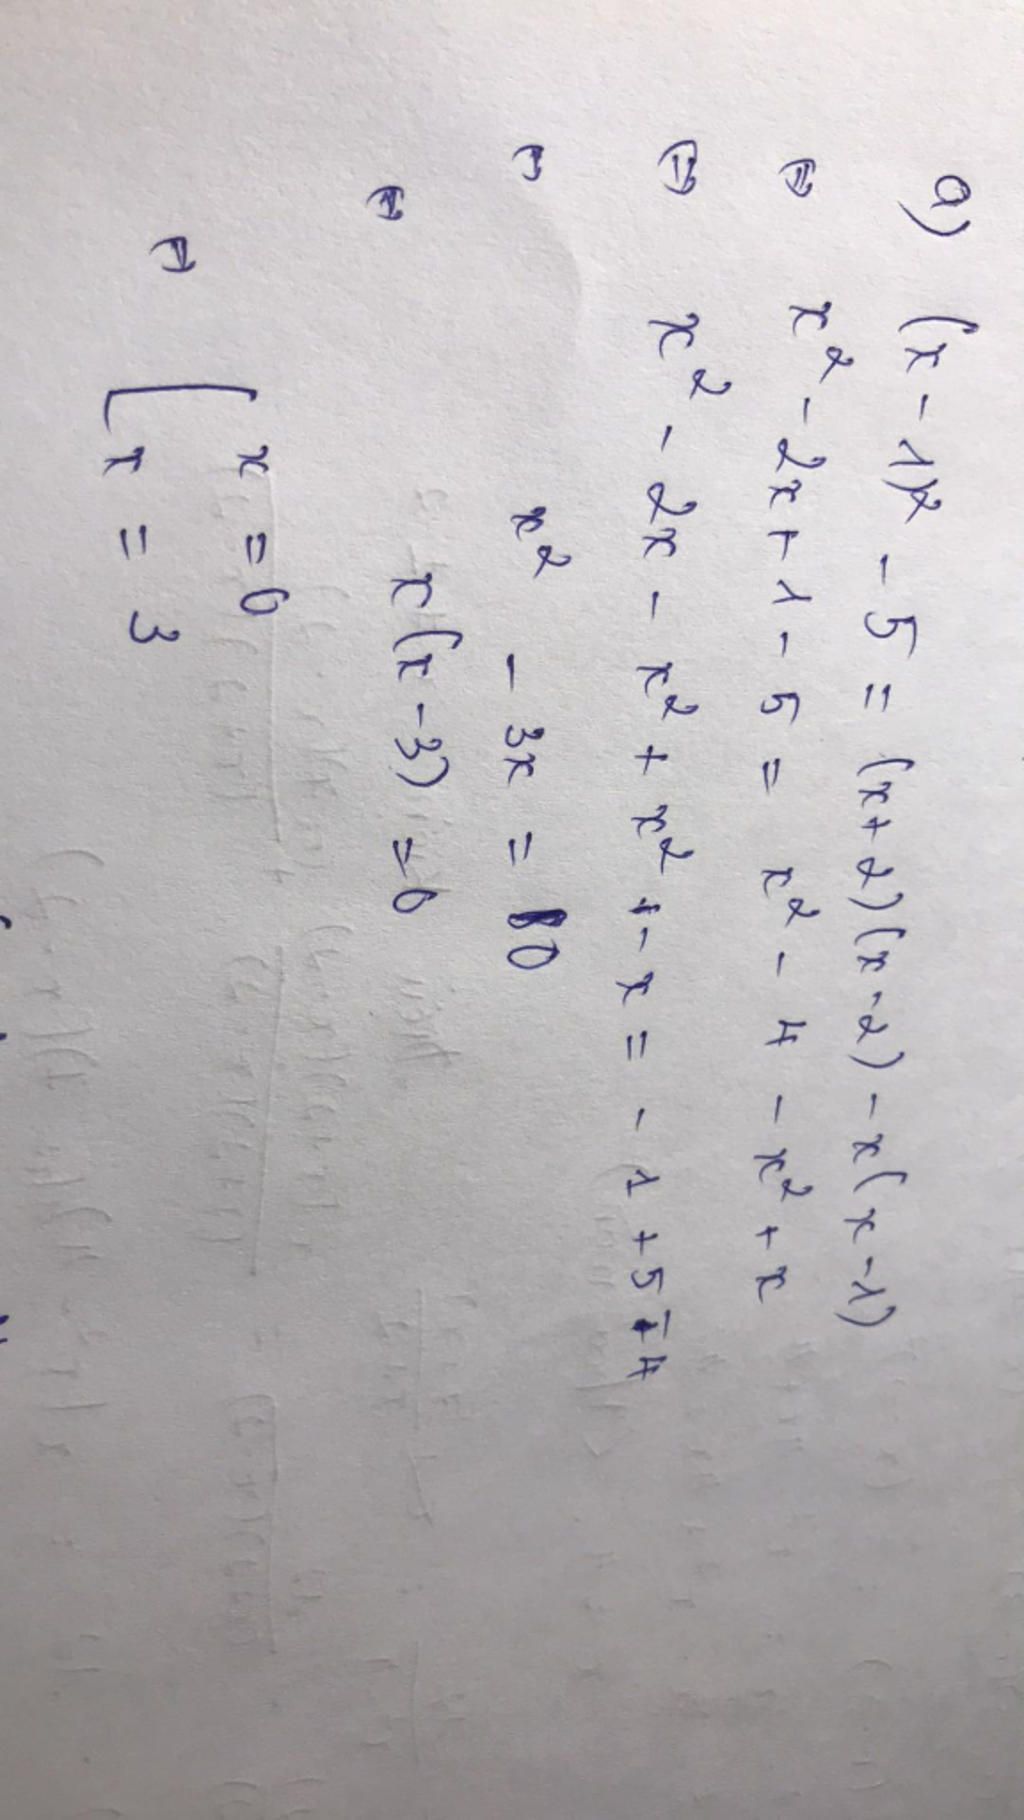 a) (x - 1)² - 5 = (x + 2)(x - 2) - x(x - 1)
⇔ x² - 2x + 1 - 5 = x² - 4 - x² + x
⇔ x² - 2x - x² + x² - x = - 1 + 5 - 4
⇔ x² - 3x = 0
⇔ x(x - 3) = 0
⇔ [ x = 0
x = 3